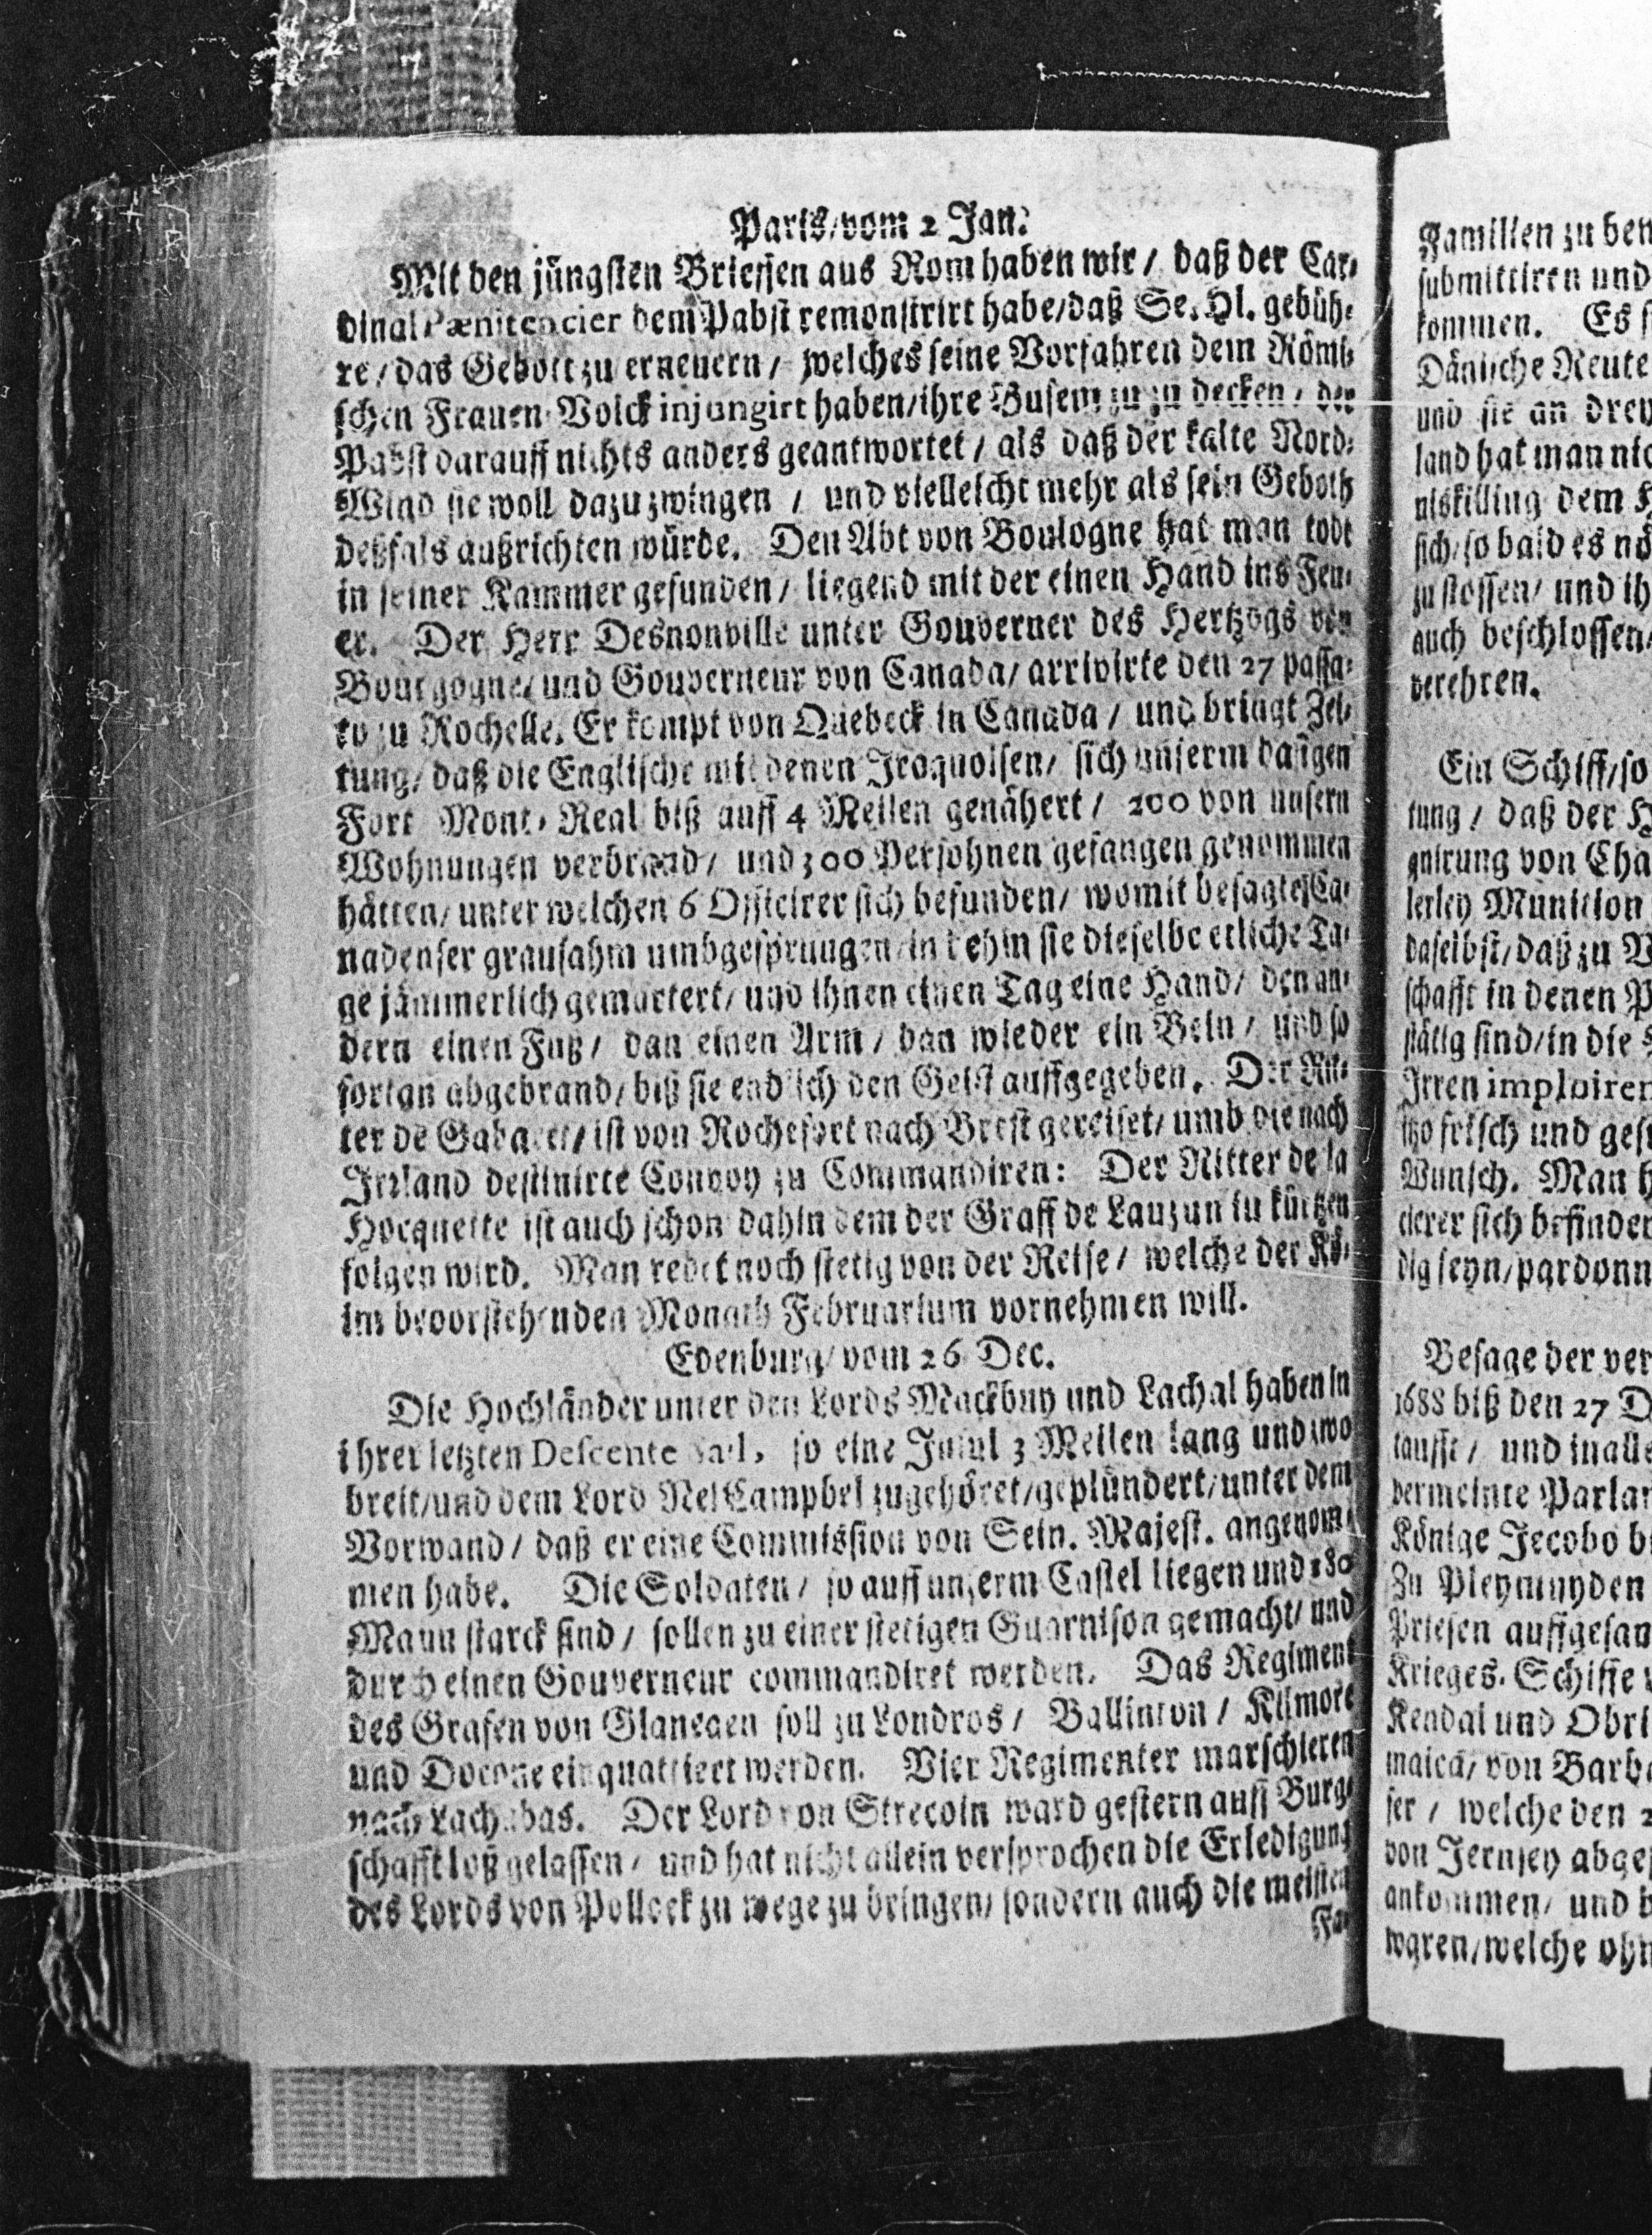 Paris/vom 2 Jan.
Mit den jüngsten Brieffen aus Rom haben wir / daß der Car-
dinal Pænitencier dem Pabst remonstrirt habe/daß Se. Hl. gebüh-
re/das Gebott zu erneuern / welches seine Vorfahren dem Römi-
schen Frauen-Volck injungirt haben/ihre Busem zu zu decken / der
Pabst darauff nichts anders geantwortet / als daß der kalte Nord-
Wind sie woll dazu zwingen / und vielleicht mehr als sein Geboth
deßfals außrichten würde. Den Abt von Boulogne hat man todt
in seiner Kammer gefunden / liegend mit der einen Hand ins Feu-
er. Der Herr Desnonville unter Gouverner des Hertzogs von
Bourgogne/ und Gouverneur von Canada/ arrivirte den 27 passa-
to zu Rochelle. Er kompt von Quebeck in Canada / und bringt Zei-
tung/ daß die Englische mit denen Iroquoisen/ sich unserm dasigen
Fort Mont-Real biß auff 4 Meilen genähert / 200 von unsern
Wohnungen verbrand/ und 300 Persohnen gefangen genommen
hätten/ unter welchen 6 Officirer sich befunden/ womit besagte Ca-
nadenser grausahm umbgesprungen/in dehm sie dieselbe etliche Ta-
ge jämmerlich gemartert/ und ihnen einen Tag eine Hand/ den an-
dern einen Fuß / dan einen Arm / dan wieder ein Bein / und so
fortan abgebrand/ biß sie endlich den Geist auffgegeben. Der Rit-
ter de / ist von Rochefort nach Brest gereiset/ umb die nach
Irrland destinirte Convoy zu Commandiren: Der Ritter de la
Hocquette ist auch schon dahin dem der Graff de Lauzun in kürtzen
folgen wird. Man redet noch stetig von der Reise / welche der Kö-
im bevorstehenden Monath Februarium vornehmen will.
Edenburg/ vom 26 Dec.
Die Hochländer unter den Lords Mackbuy und Lachal haben in
ihrer letzten Descente so eine Insul 3 Meilen lang und zwo
breit/und dem Lord Nel Campbel zugehöret/geplündert/unter dem
Vorwand / daß er eine Commission von Sein. Majest. angenom-
men habe. Die Soldaten / so auff unserm Castel liegen und 180
Mann starck sind / sollen zu einer stetigen Guarnison gemacht/ und
durch einen Gouverneur commandiret werden. Das Regiment
des Grafen von soll zu Londros / Ballinton / Kilmore
und einquartiert werden. Vier Regimenter marschieren
nach . Der Lord von Strecoln ward gestern auff Burg-
schafft loß gelassen / und hat nicht allein versprochen die Erledigung
des Lords von Pollock zu wege zu bringen/ sondern auch die meisten
Fa-
Familien zu
submittiren und
kommen. Es
Dänische Reute
und sie an drey
land hat man
niskilling dem
sich/so bald es
zu stossen/ und
auch beschlossen/
verehren.
Ein Schiff/so
tung / daß der
von
lerley Munition
daselbst/daß zu
schafft in denen
stätig sind/in die
Irren imploiren
itzo frisch und
Wunsch. Man
cierer sich
dig seyn/pardonn
Besage der
1688 biß den 27 D
taufft / und
vermeinte Parla
Könige Jecobo
Zu Pleymuyden
Priesen
Krieges-Schiffe
Kendal und Obri
maica/ von Barb
ser / welche den 2
von Jernsey
ankommen/ und
waren/welche